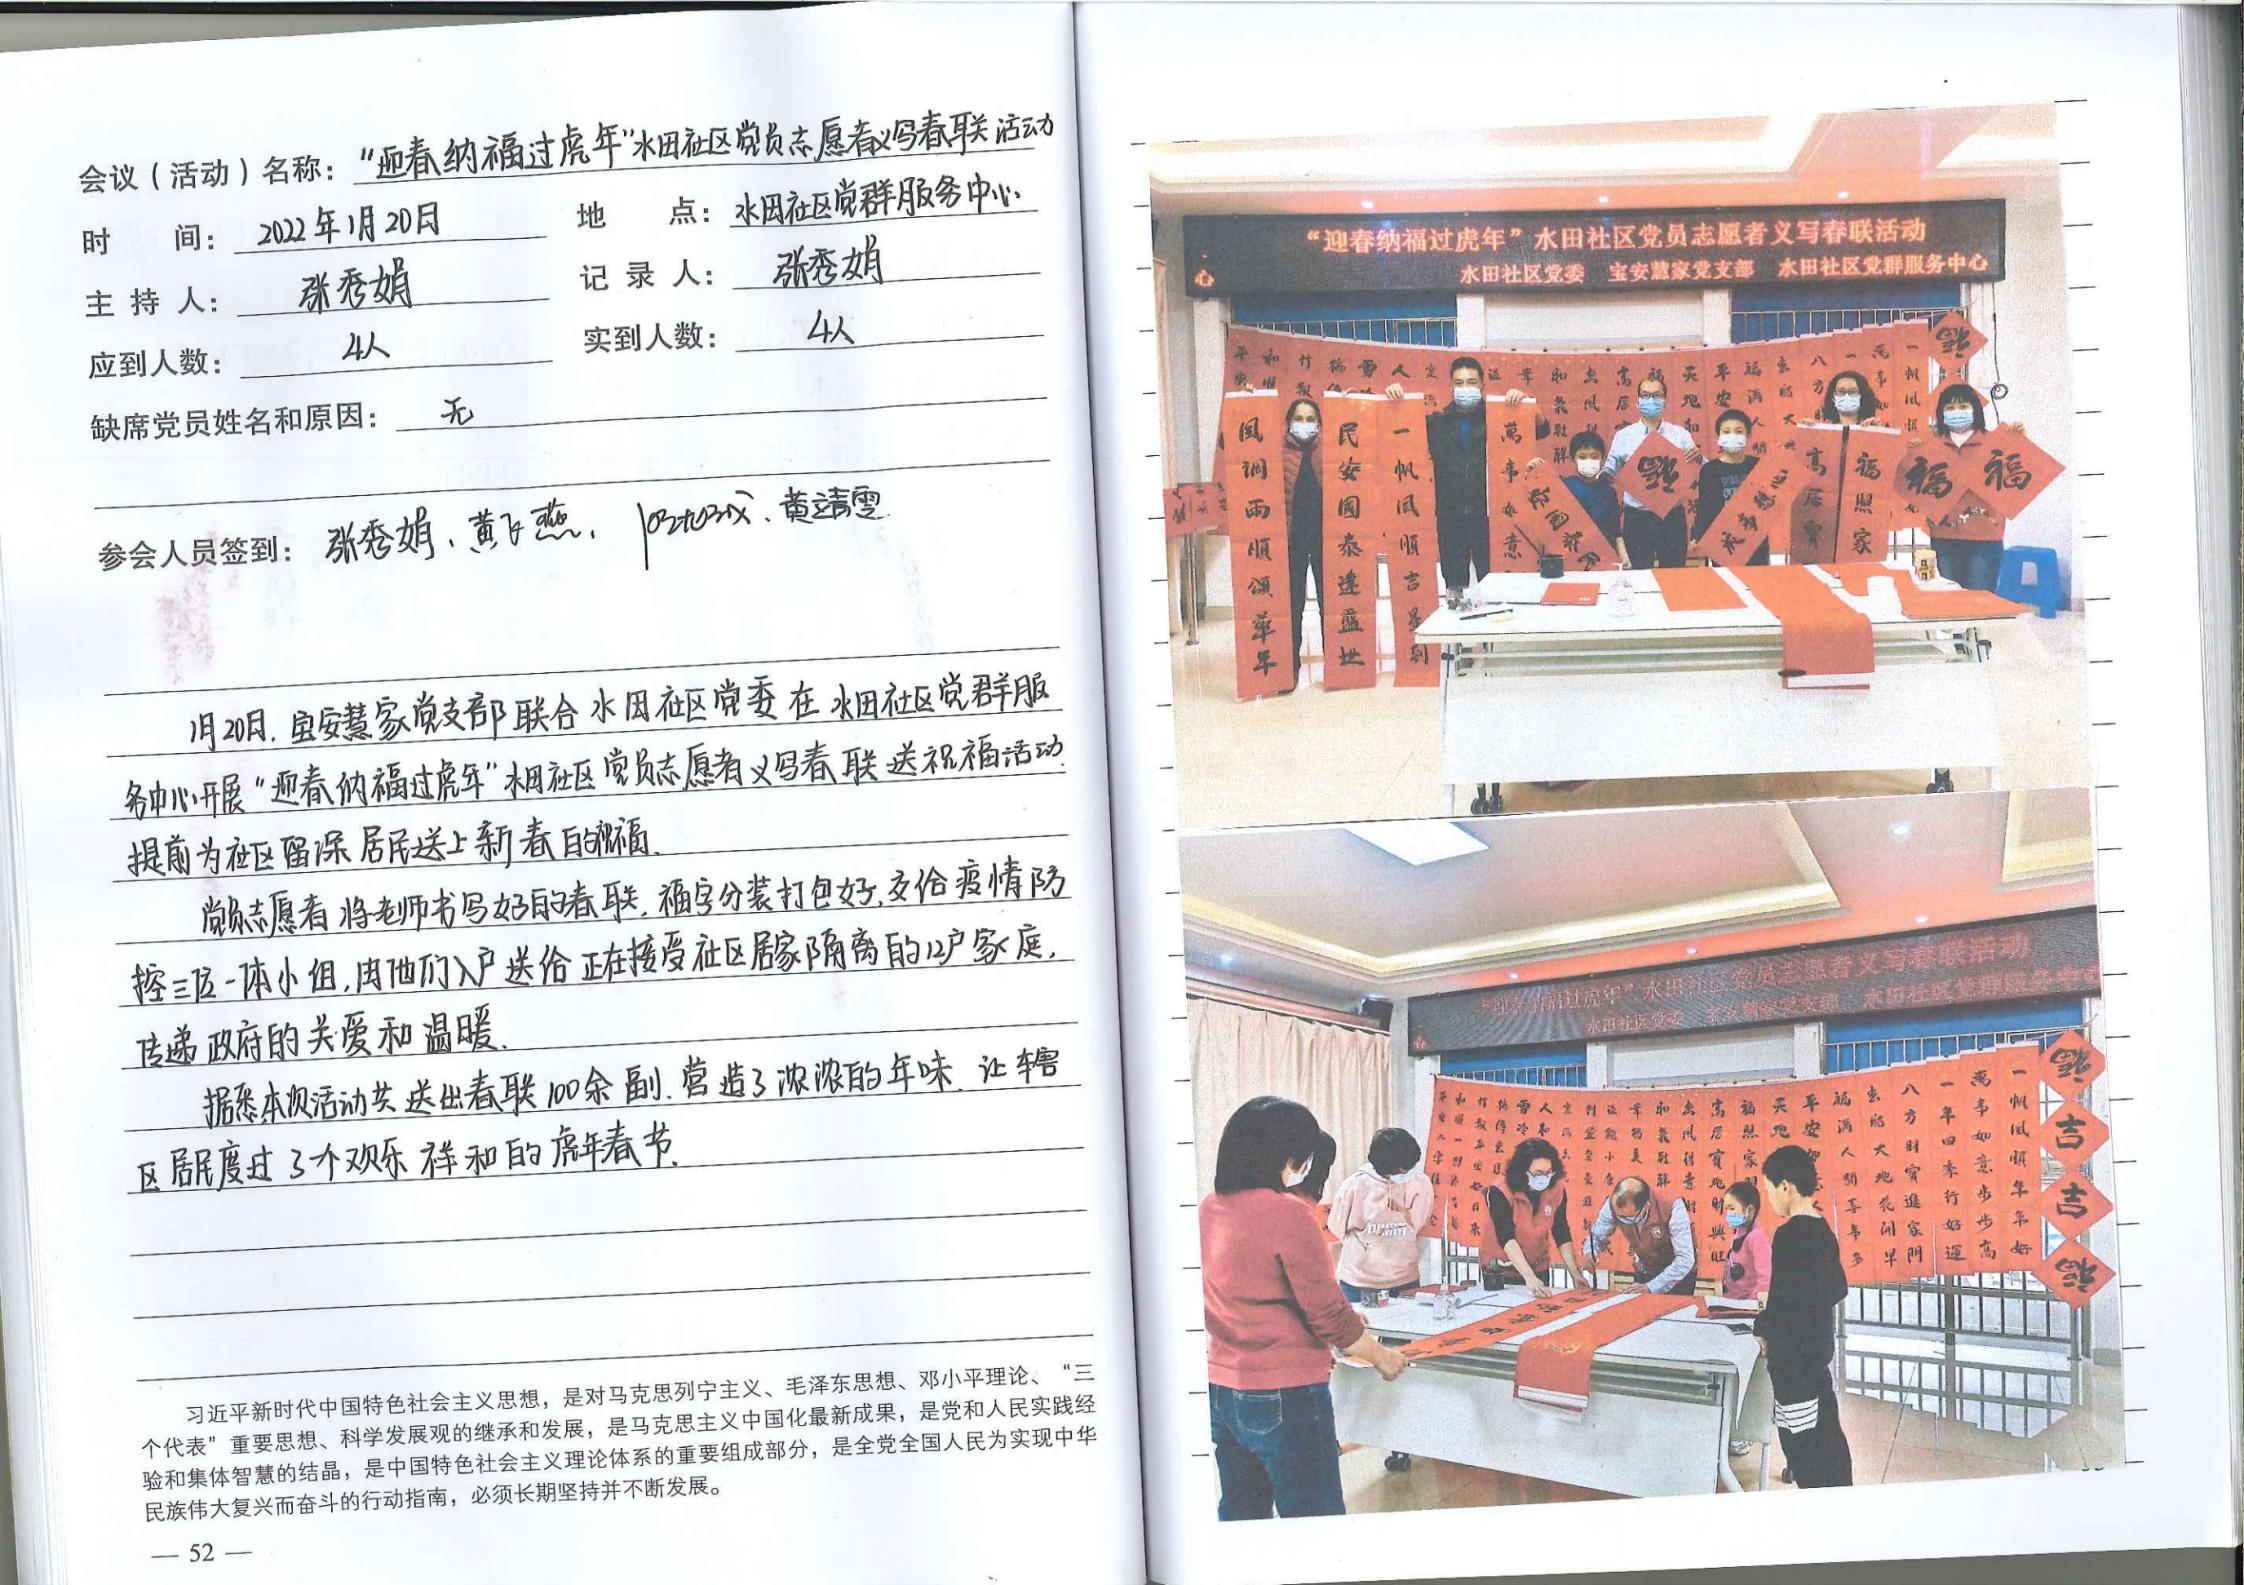 会议（活动）名称：“迎春纳福过虎年”水田社区党员志愿者义写春联活动
时 间：2022年1月20日 地 点：水田社区党群服务中心
主 持 人：张秀娟 记 录 人：张秀娟
应到人数：4人 实到人数：4人
缺席党员姓名和原因：无
参会人员签到：张秀娟、黄飞燕、 、黄靖雯
1月20日，宝安慧家党支部联合水田社区党委在水田社区党群服
务中心开展“迎春纳福过虎年”水田社区党员志愿者义写春联送祝福活动
提前为社区留深居民送上新春的祝福.
党员志愿者将老师书写好的春联，福字分装打包好，交给疫情防
控三位一体小组，由他们入户送给正在接受社区居家隔离的12户家庭，
传递政府的关爱和温暖.
据悉本次活动共送出春联100余副，营造了浓浓的年味，让辖
区居民度过了个欢乐祥和的虎年春节.
习近平新时代中国特色社会主义思想，是对马克思列宁主义、毛泽东思想、邓小平理论、“三
个代表”重要思想、科学发展观的继承和发展，是马克思主义中国化最新成果，是党和人民实践经
验和集体智慧的结晶，是中国特色社会主义理论体系的重要组成部分，是全党全国人民为实现中华
民族伟大复兴而奋斗的行动指南，必须长期坚持并不断发展。
— 52 —
“迎春纳福过虎年”水田社区党员志愿者义写春联活动
心 水田社区党委 宝安慧家党支部 水田社区党群服务中心
風調雨順頌華年
民安國泰逢盛世
一帆風順吉星到
萬事如意
高居寶
福照家
福
福
“迎春纳福过虎年”水田社区党员志愿者义写春联活动
水田社区党委 宝安慧家党支部 水田社区党群服务中心
福滿人間喜事多
春臨大地花開早
八方財寶進家門
一年四季行好運
萬事如意步步高
一帆風順年年好
福
吉
吉
福